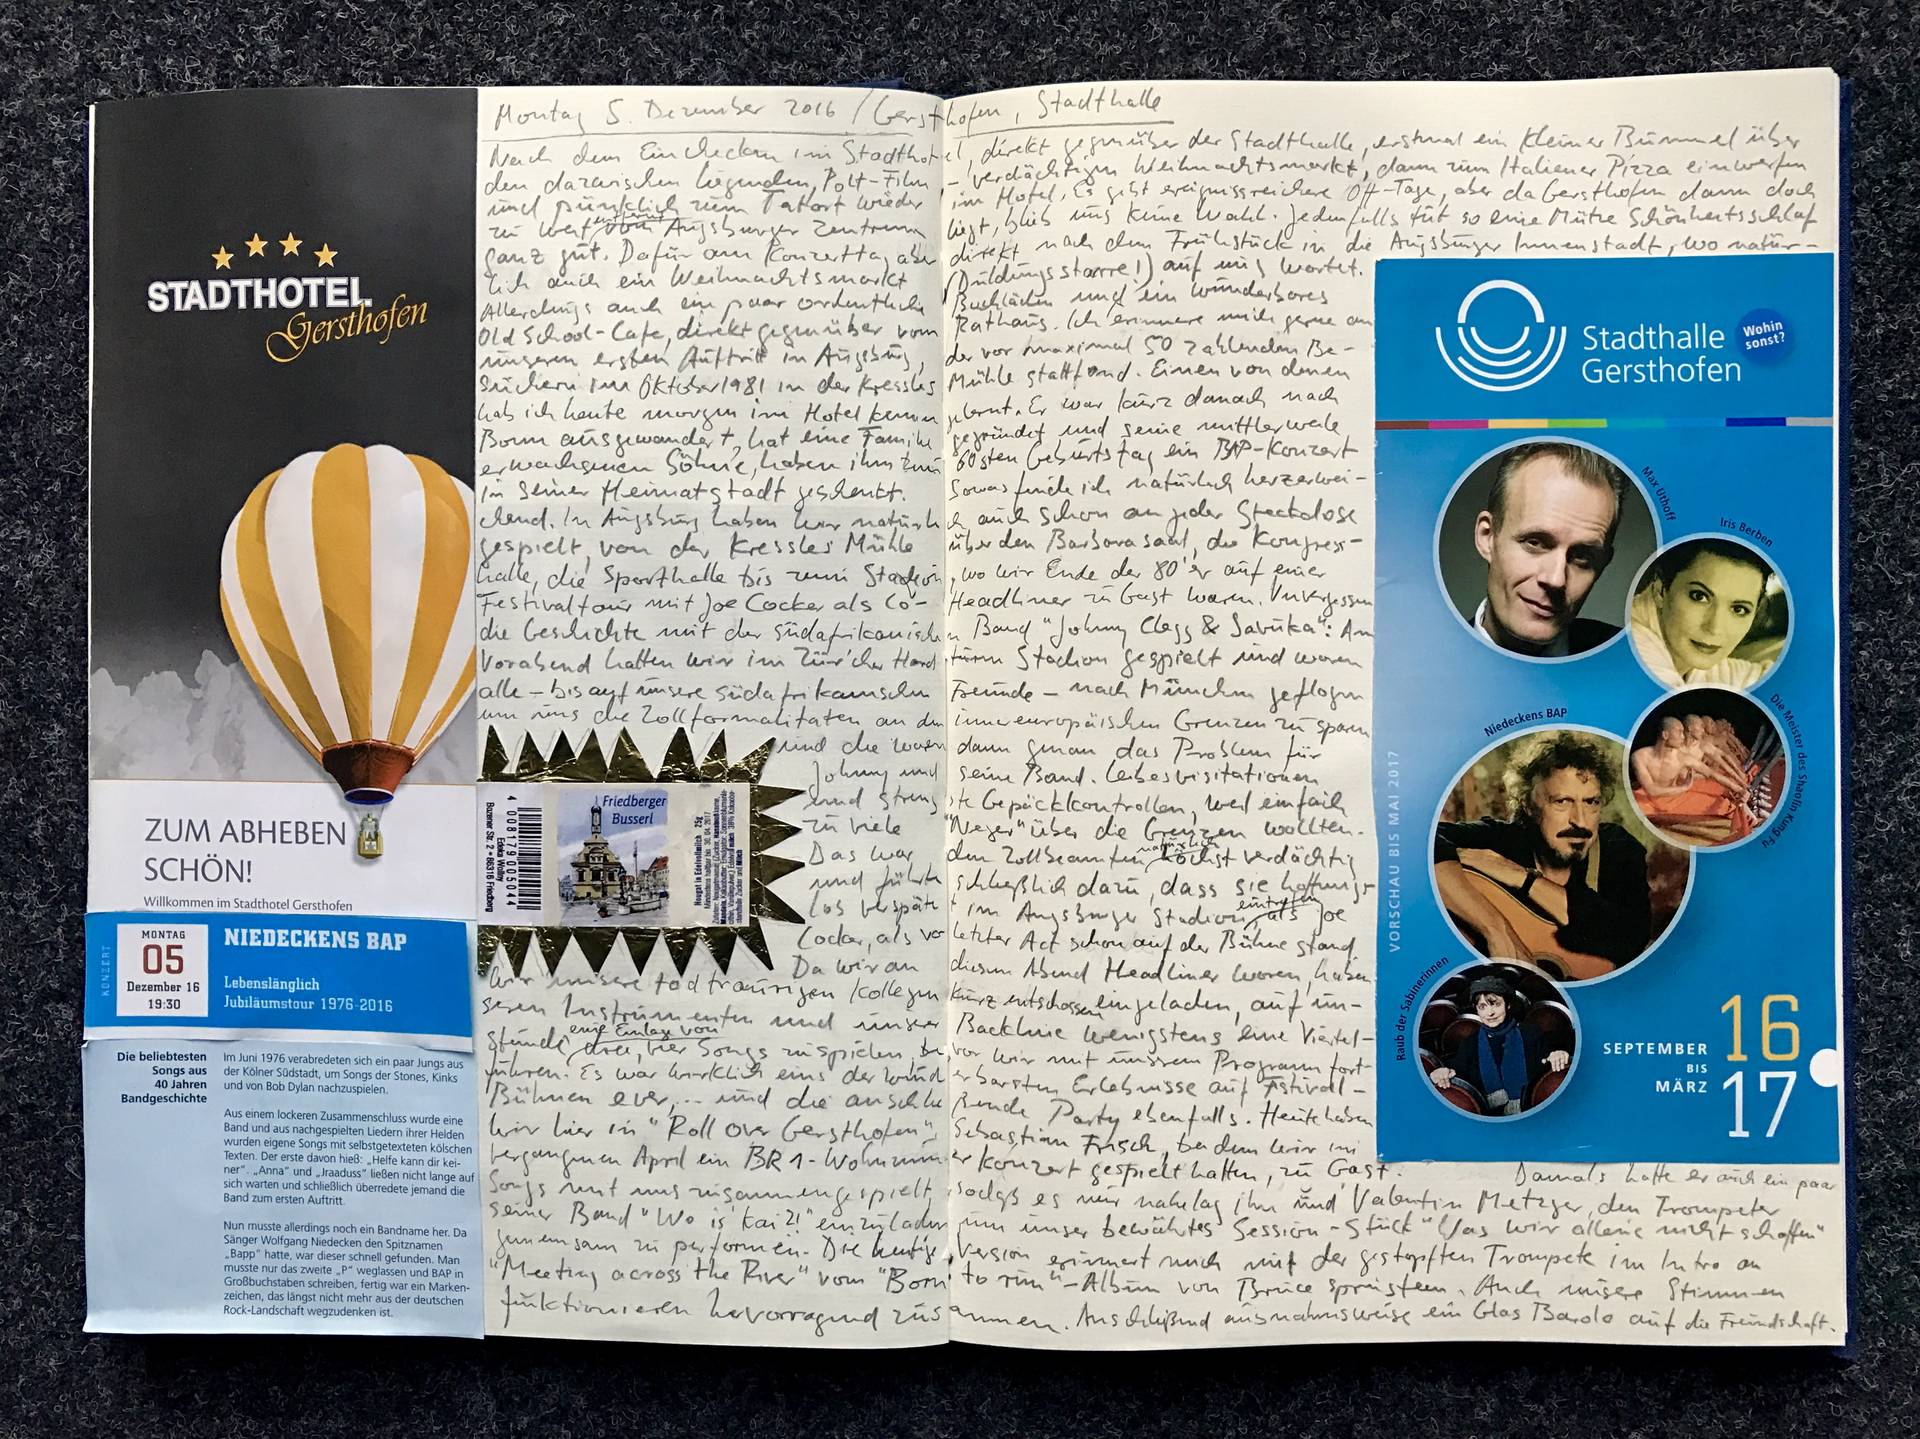 STADTHOTEL
Gersthofen
ZUM ABHEBEN
SCHÖN!
Willkommen im Stadthotel Gersthofen
KONZERT
MONTAG
05
Dezember 16
19:30
NIEDECKENS BAP
Lebenslänglich
Jubiläumstour 1976-2016
Die beliebtesten
Songs aus
40 Jahren
Bandgeschichte
Im Juni 1976 verabredeten sich ein paar Jungs aus
der Kölner Südstadt, um Songs der Stones, Kinks
und von Bob Dylan nachzuspielen.
Aus einem lockeren Zusammenschluss wurde eine
Band und aus nachgespielten Liedern ihrer Helden
wurden eigene Songs mit selbstgetexteten kölschen
Texten. Der erste davon hieß: „Helfe kann dir kei-
ner“. „Anna“ und „Jraaduss“ ließen nicht lange auf
sich warten und schließlich überredete jemand die
Band zum ersten Auftritt.
Nun musste allerdings noch ein Bandname her. Da
Sänger Wolfgang Niedecken den Spitznamen
„Bapp“ hatte, war dieser schnell gefunden. Man
musste nur das zweite „P“ weglassen und BAP in
Großbuchstaben schreiben, fertig war ein Marken-
zeichen, das längst nicht mehr aus der deutschen
Rock-Landschaft wegzudenken ist.
Montag 5. Dezember 2016 / Gersthofen, Stadthalle
Nach dem Einchecken im Stadthotel, direkt gegenüber der Stadthalle, erstmal ein kleiner Bummel über
den dazwischen liegenden, Polt-Film-verdächtigen Weihnachtsmarkt, dann zum Italiener Pizza einwerfen
und pünktlich zum Tatort wieder im Hotel. Es gibt ereignisreichere Off-Tage, aber da Gersthofen dann doch
zu weit vom Augsburger Zentrum entfernt liegt, blieb uns keine Wahl. Jedenfalls tut so eine Mütze Schönheitsschlaf
ganz gut. Dafür am Konzerttag aber direkt nach dem Frühstück in die Augsburger Innenstadt, wo natür-
lich auch ein Weihnachtsmarkt (Duldungsstarre!) auf uns wartet.
Allerdings auch ein paar ordentliche Buchläden und ein wunderbares
Old School-Cafe, direkt gegenüber vom Rathaus. Ich erinnere mich gerne an
unseren ersten Auftritt in Augsburg, der vor maximal 50 zahlenden Be-
suchern im Oktober 1981 in der Kressles Mühle stattfand. Einen von denen
hab ich heute morgen im Hotel kennen gelernt. Er war kurz danach nach
Bonn ausgewandert, hat eine Familie gegründet und seine mittlerweile
erwachsenen Söhne, haben ihm zum 60sten Geburtstag ein BAP-Konzert
in seiner Heimatstadt geschenkt. Sowas finde ich natürlich herzerwei-
chend. In Augsburg haben wir natürlich auch schon an jeder Steckdose
gespielt, von der Kressles Mühle über den Barbarasaal, die Kongress-
halle, die Sporthalle bis zum Stadion, wo wir Ende der 80er auf einer
Festivaltour mit Joe Cocker als Co-Headliner zu Gast waren. Unvergessen
die Geschichte mit der südafrikanischen Band "Johnny Clegg & Savuka": Am
Vorabend hatten wir im Zürcher Hardturm Stadion gespielt und waren
alle – bis auf unsere südafrikanischen Freunde – nach München geflogen
um uns die Zollformalitäten an den innereuropäischen Grenzen zu sparen
und die waren dann genau das Problem für
Johnny und seine Band. Leibesvisitationen
und strengste Gepäckkontrollen, weil einfach
zu viele "Neger" über die Grenzen wollten.
Das war den Zollbeamten natürlich höchst verdächtig
und führte schließlich dazu, dass sie hoffnungs-
los verspätet im Augsburger Stadion eintrafen, als Joe
Cocker, als vorletzter Act schon auf der Bühne stand.
Da wir an diesem Abend Headliner waren, haben
wir unsere todtraurigen Kollegen kurz entschlossen eingeladen, auf un-
seren Instrumenten und unserer Backline wenigstens eine Viertel-
stunde eine Einlage von drei, vier Songs zu spielen, bevor wir mit unserem Programm fort-
führen. Es war wirklich eins der wunderbarsten Erlebnisse auf Festival-
Bühnen ever,... und die anschließende Party ebenfalls. Heute haben
wir hier in "Roll over Gersthofen", Sebastian Frisch, bei dem wir im
vergangenen April ein BR 1-Wohnzimmer Konzert gespielt hatten, zu Gast. Damals hatte er auch ein paar
Songs mit uns zusammengespielt, sodass es nur nahelag ihn und Valentin Metzger, den Trompeter
seiner Band "Wo is' kai?!" einzuladen um unser bewährtes Session-Stück "Was wir alleine nicht schaffen"
gemeinsam zu performen. Die heutige Version erinnert mich mit der gestopften Trompete im Intro an
"Meeting across the River" vom "Born to run"-Album von Bruce Springsteen. Auch unsere Stimmen
funktionieren hervorragend zusammen. Anschließend ausnahmsweise ein Glas Barolo auf die Freundschaft.
Friedberger
Busserl
4 008790 05044
Edeka Wollny
Bozener Str. 2 • 86316 Friedberg
Nougat in Edelvollmilch 25g
Stadthalle
Gersthofen
Wohin
sonst?
VORSCHAU BIS MAI 2017
Max Uthoff
Iris Berben
Niedeckens BAP
Die Meister des Shaolin Kung Fu
Raub der Sabinerinnen
SEPTEMBER
BIS
MÄRZ
16
17